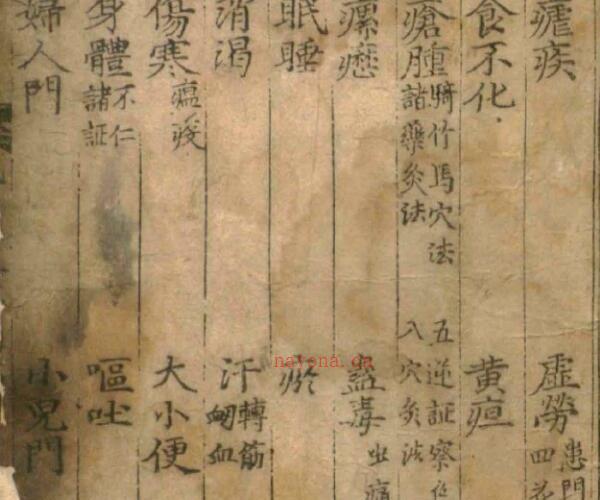 瘧疾 虛勞 患門 四花
食不化 黃疸
瘡腫 騎竹馬穴法 諸藥灸法 五逆証察 八穴灸法
瘰癧 蠱毒
眠睡
消渴 汗 轉筋 衂血
傷寒 瘟疫 大小便
身體 不仁 諸証 嘔吐
婦人門 小兒門